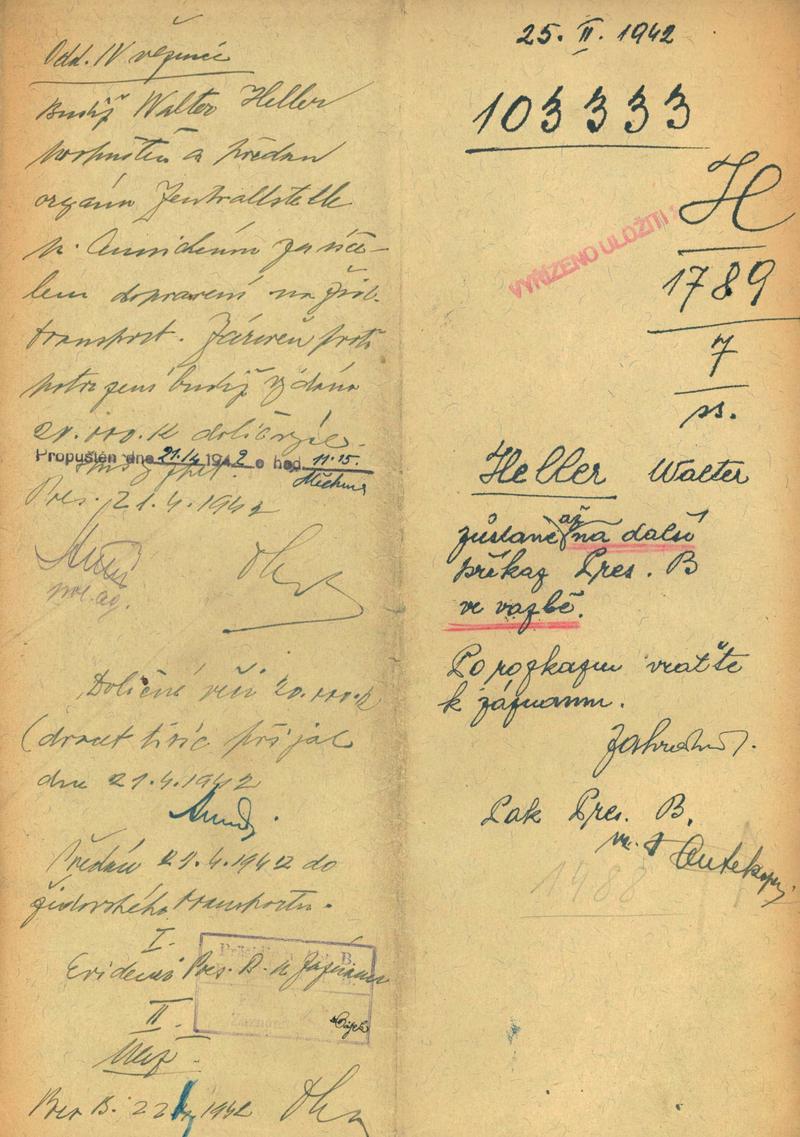 Odd. IV věznice
Budiž Walter Heller
propuštěn a předán
orgánu Zentrallstelle
za úče-
lem dopravení na žid.
transport. Zároveň proti
potvrzení budiž vydáno
20.000 K
Propuštěn dne 21.IV 1942 o hod. 11.15.
Pres. 21.4.1942
pol. ag.
Doličné věci 20.000 K
(dvacet tisíc přijal
dne 21.4.1942
Předán 21.4.1942 do
židovského transportu.
I.
Evidenci Pres. B. k záznamu
II.
B.
Pres B. 22 1942
25. II. 1942
103333
H
1789
7
VYŘÍZENO ULOŽITI
Heller Walter
zůstane až na další
příkaz Pres. B
ve vazbě.
Po rozkazu vraťte
k záznamu.
Pak Pres. B.
1488